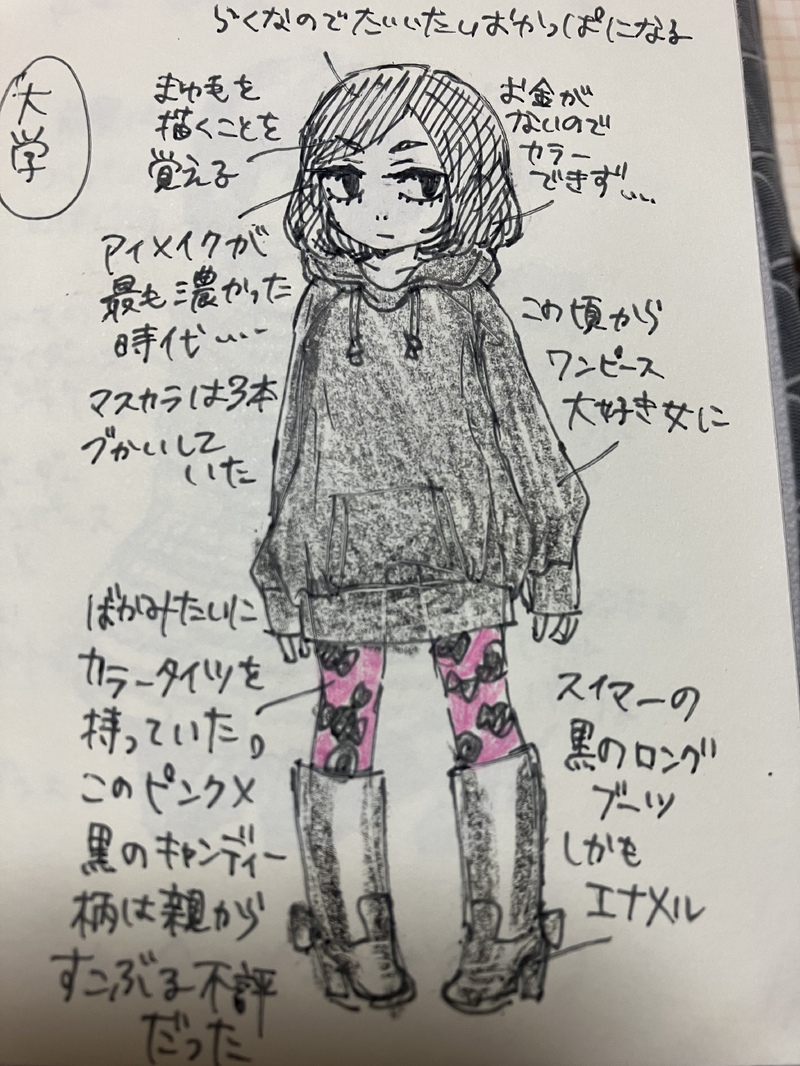 らくなのでだいたいおかっぱになる
大学
まゆ毛を
描くことを
覚える
お金が
ないので
カラー
できず…
アイメイクが
最も濃かった
時代…
マスカラは3本
づかいして
いた
この頃から
ワンピース
大好き女に
ばかみたいに
カラータイツを
持っていた。
このピンク×
黒のキャンディー
柄は親から
すこぶる不評
だった
スイマーの
黒のロング
ブーツ
しかも
エナメル